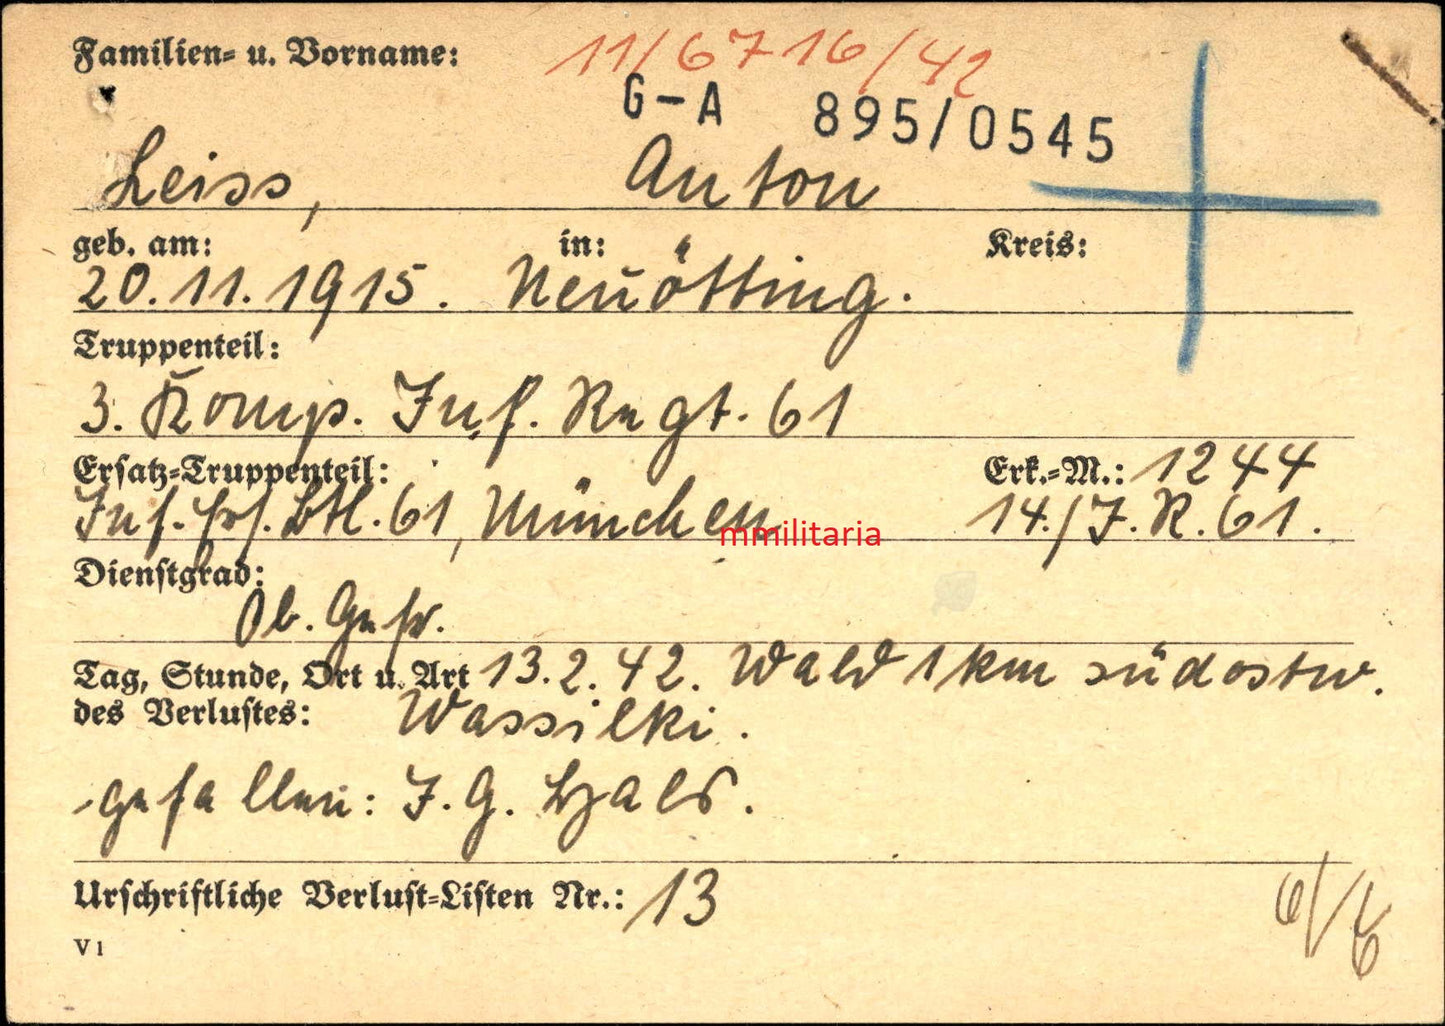 Familien- u. Vorname: 11/6716/42
G-A 895/0545
Leiss, Anton
geb. am: in: Kreis:
20.11.1915. Neuötting.
Truppenteil:
3. Komp. Inf. Regt. 61
Ersatz-Truppenteil: Erk.-M.: 1244
Inf. Ers. Btl. 61, München 14./J.R.61.
mmilitaria
Dienstgrad:
Ob. Gefr.
Tag, Stunde, Ort u. Art 13.2.42. Wald 1 km südostw.
des Verlustes: Wassilki.
gefallen: J.G.
Urschriftliche Verlust-Listen Nr.: 13
V 1